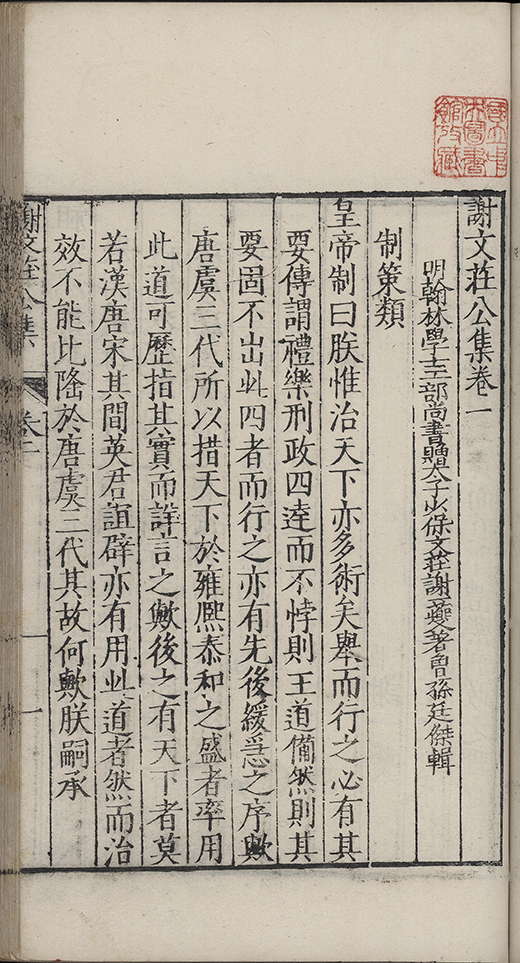 國立中
央圖書
館收藏
謝文莊公集卷一
明翰林學士工部尚書贈太子少保文莊謝一夔著曾孫廷傑輯
制策類
皇帝制曰朕惟治天下亦多術矣舉而行之必有其
要傳謂禮樂刑政四達而不悖則王道備然則其
要固不出此四者而行之亦有先後緩急之序歟
唐虞三代所以措天下於雍熈泰和之盛者率用
此道可歷指其實而詳言之歟後之有天下者莫
若漢唐宋其間英君誼辟亦有用此道者然而治
效不能比隆於唐虞三代其故何歟朕嗣承
謝文莊公集 卷一 一